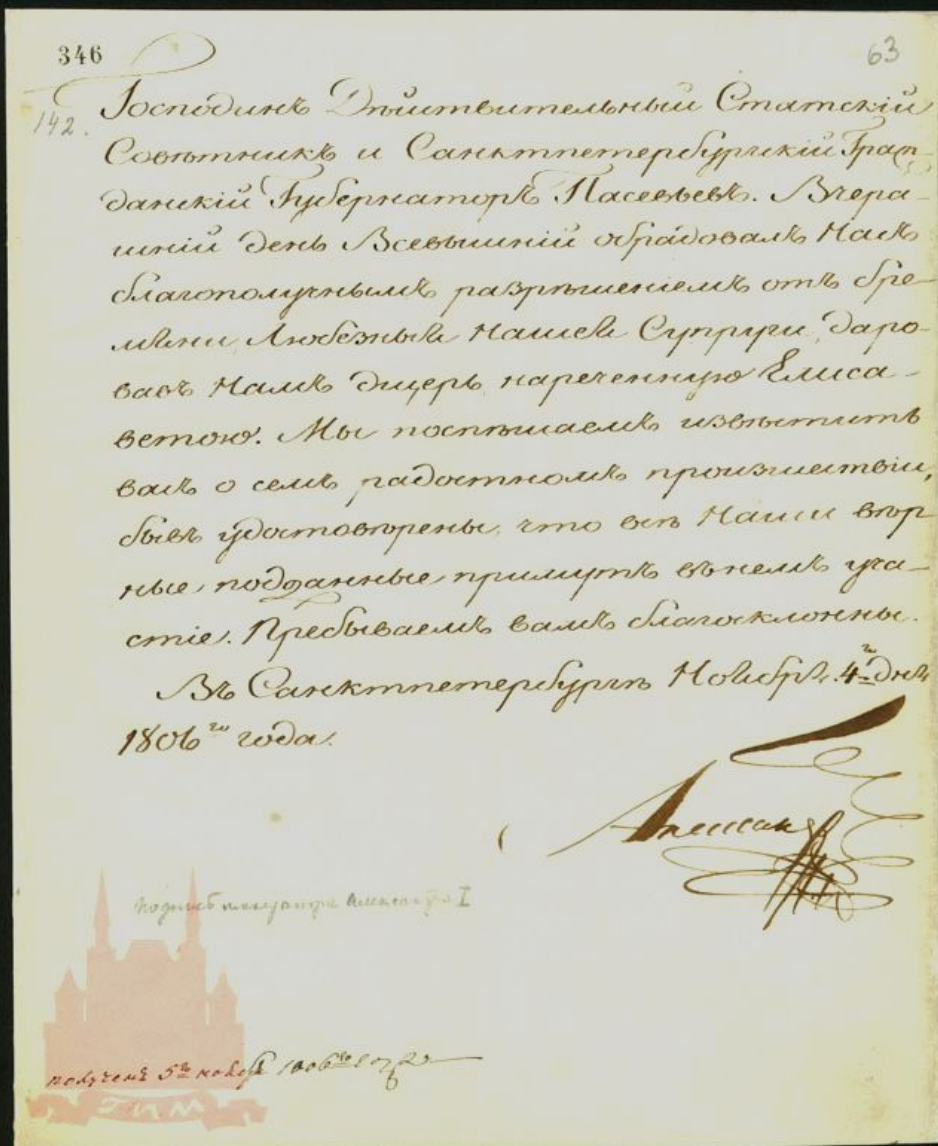 346
63
142.
Господинъ Дѣйствительный Статскій
Совѣтникъ и Санктпетербургскій Граж-
данскій Губернаторъ Пасевьевъ. Вчера-
шній день Всевышній обрадовалъ Насъ
благополучнымъ разрѣшеніемъ отъ бре-
мени Любезныя Нашей Супруги, даро-
вавъ Намъ дщерь нареченную Елиса-
ветою. Мы поспѣшаемъ извѣстить
васъ о семъ радостномъ произшествіи,
бывъ удостовѣрены, что всѣ Наши вѣр
ные подданные примутъ въ немъ уча-
стіе. Пребываемъ вамъ благосклонны.
Въ Санктпетербургѣ Ноября 4го дня
1806го года.
Александръ
подпись императора Александра I
полученъ 5го ноября 1806го года
ГИМ